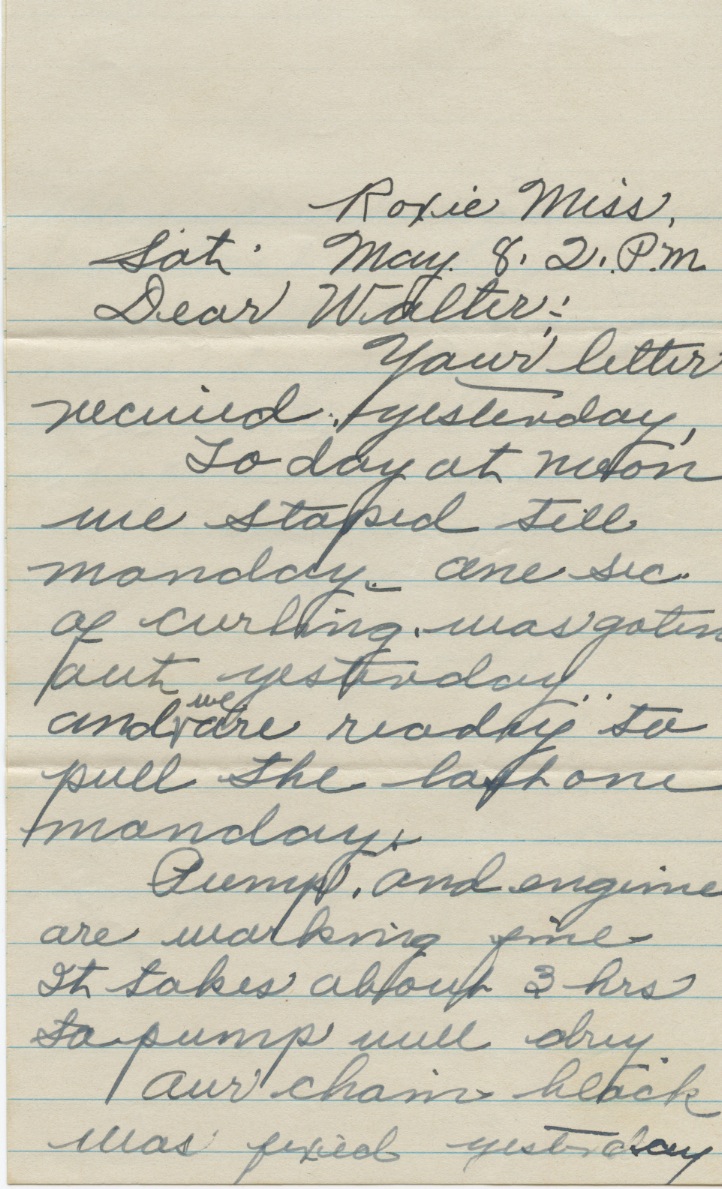 Roxie Miss,
Sat. May 8. 2. P.m
Dear Walter:
Your letter
recieied. yesterday,
To day at noon
we staped till
monday. one sec.
of curbing. was goten
out yesterday.
and we are ready to
pull the last one
monday.
Pump. and engine
are working fine
It takes about 3 hrs
to pump well dry
our chain block
was fixed yesterday